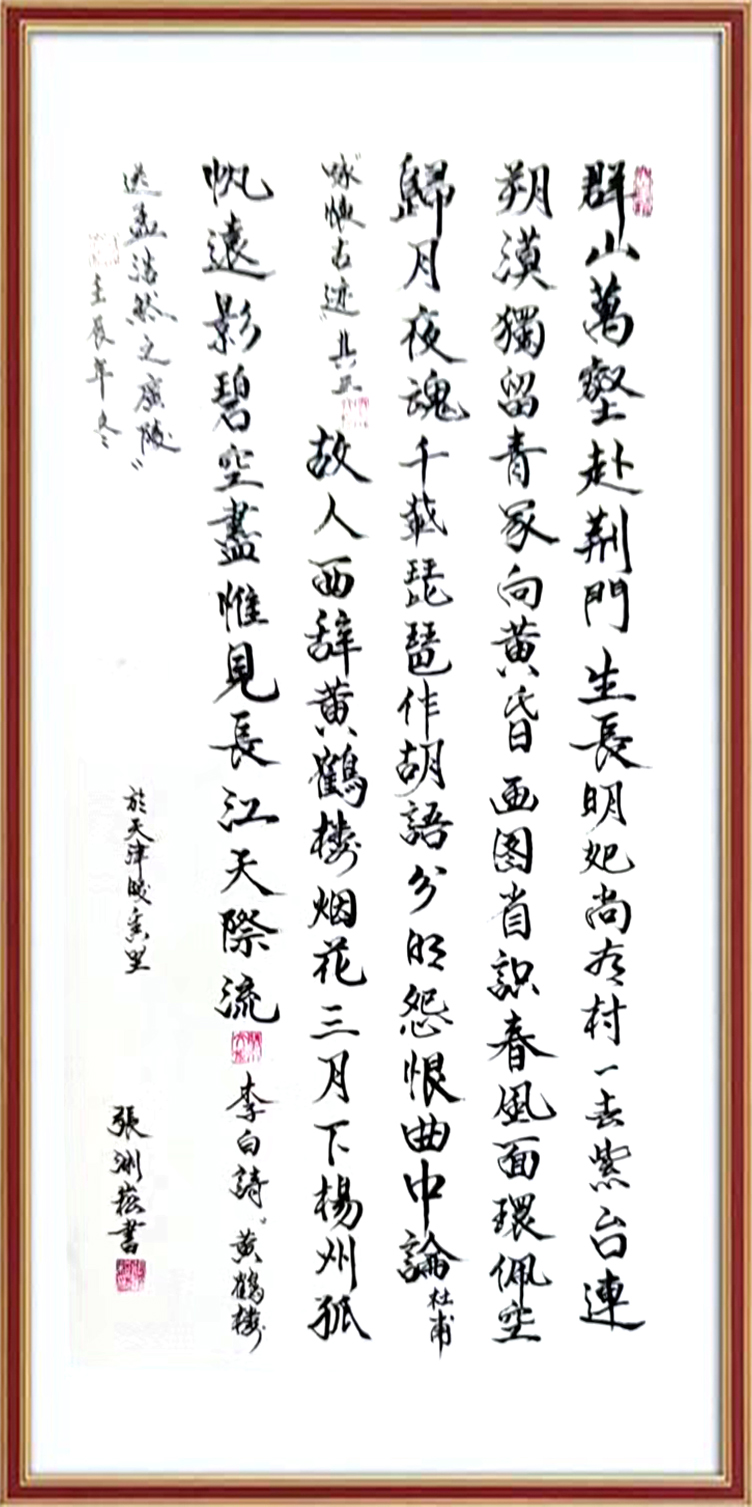 群山萬壑赴荆門生長明妃尚有村一去紫台連
朔漠獨留青冢向黄昏画图省識春風面環佩空
歸月夜魂千載琵琶作胡語分明怨恨曲中論杜甫
"咏懷古迹"其三
故人西辞黄鶴楼烟花三月下楊州孤
帆遠影碧空盡惟見長江天際流李白詩"黄鶴楼
送孟浩然之廣陵"
壬辰年冬
於天津
張洲崧書